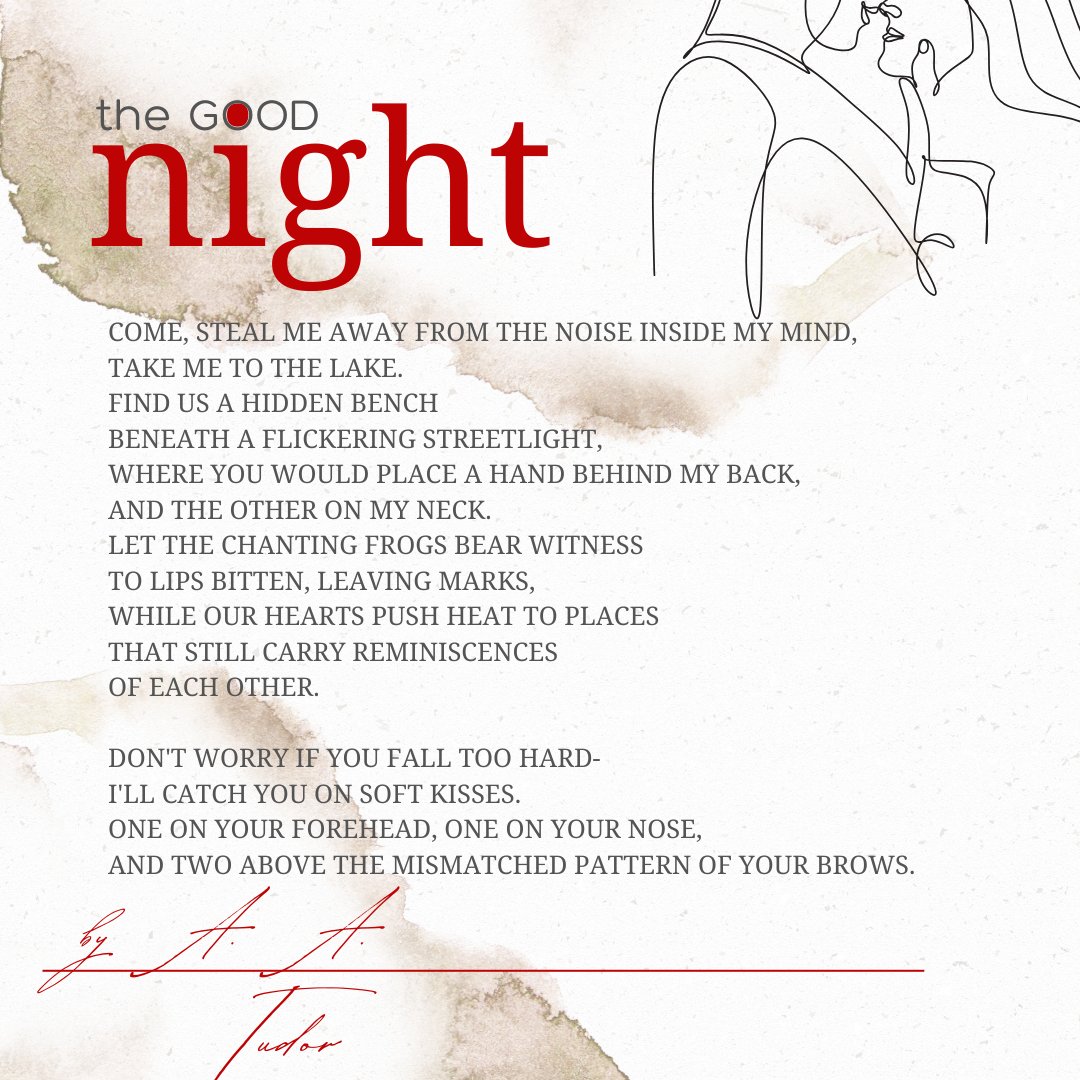 the GOOD
night
COME, STEAL ME AWAY FROM THE NOISE INSIDE MY MIND,
TAKE ME TO THE LAKE.
FIND US A HIDDEN BENCH
BENEATH A FLICKERING STREETLIGHT,
WHERE YOU WOULD PLACE A HAND BEHIND MY BACK,
AND THE OTHER ON MY NECK.
LET THE CHANTING FROGS BEAR WITNESS
TO LIPS BITTEN, LEAVING MARKS,
WHILE OUR HEARTS PUSH HEAT TO PLACES
THAT STILL CARRY REMINISCENCES
OF EACH OTHER.
DON'T WORRY IF YOU FALL TOO HARD-
I'LL CATCH YOU ON SOFT KISSES.
ONE ON YOUR FOREHEAD, ONE ON YOUR NOSE,
AND TWO ABOVE THE MISMATCHED PATTERN OF YOUR BROWS.
by A. A.
Tudor